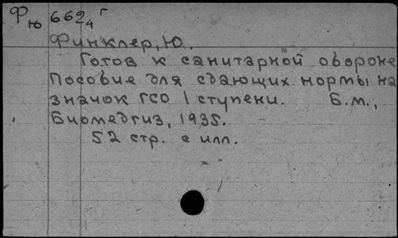 Фю 662 4 г
Финклер, Ю.
Готов к санитарной обороне
Пособие для сдающих нормы на
значок ГСО 1 ступени. Б.м.,
Биомедгиз, 1935.
52 стр. с илл.